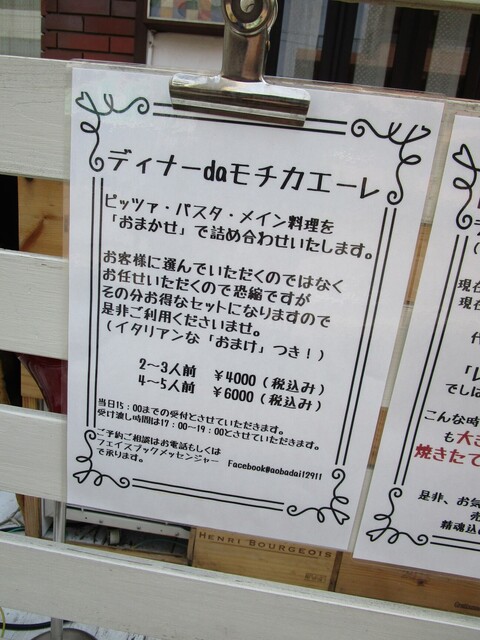 ディナーdaモチカエーレ
ピッツァ・パスタ・メイン料理を
「おまかせ」で詰め合わせいたします。
お客様に選んでいただくのではなく
お任せいただくので恐縮ですが
その分お得なセットになりますので
是非ご利用くださいませ。
(イタリアンな「おまけ」つき!)
2~3人前 ¥4000(税込み)
4~5人前 ¥6000(税込み)
当日15:00までの受付とさせていただきます。
受け渡し時間は17:00ー19:00とさせていただきます。
ご予約ご相談はお電話もしくは
フェイスブックメッセンジャー Facebook@aobadai12911
で承ります。
HENRI BOURGEOIS
現在
現在
代
でしば
こんな時
も大き
焼きたて
是非、お気
売
精魂込